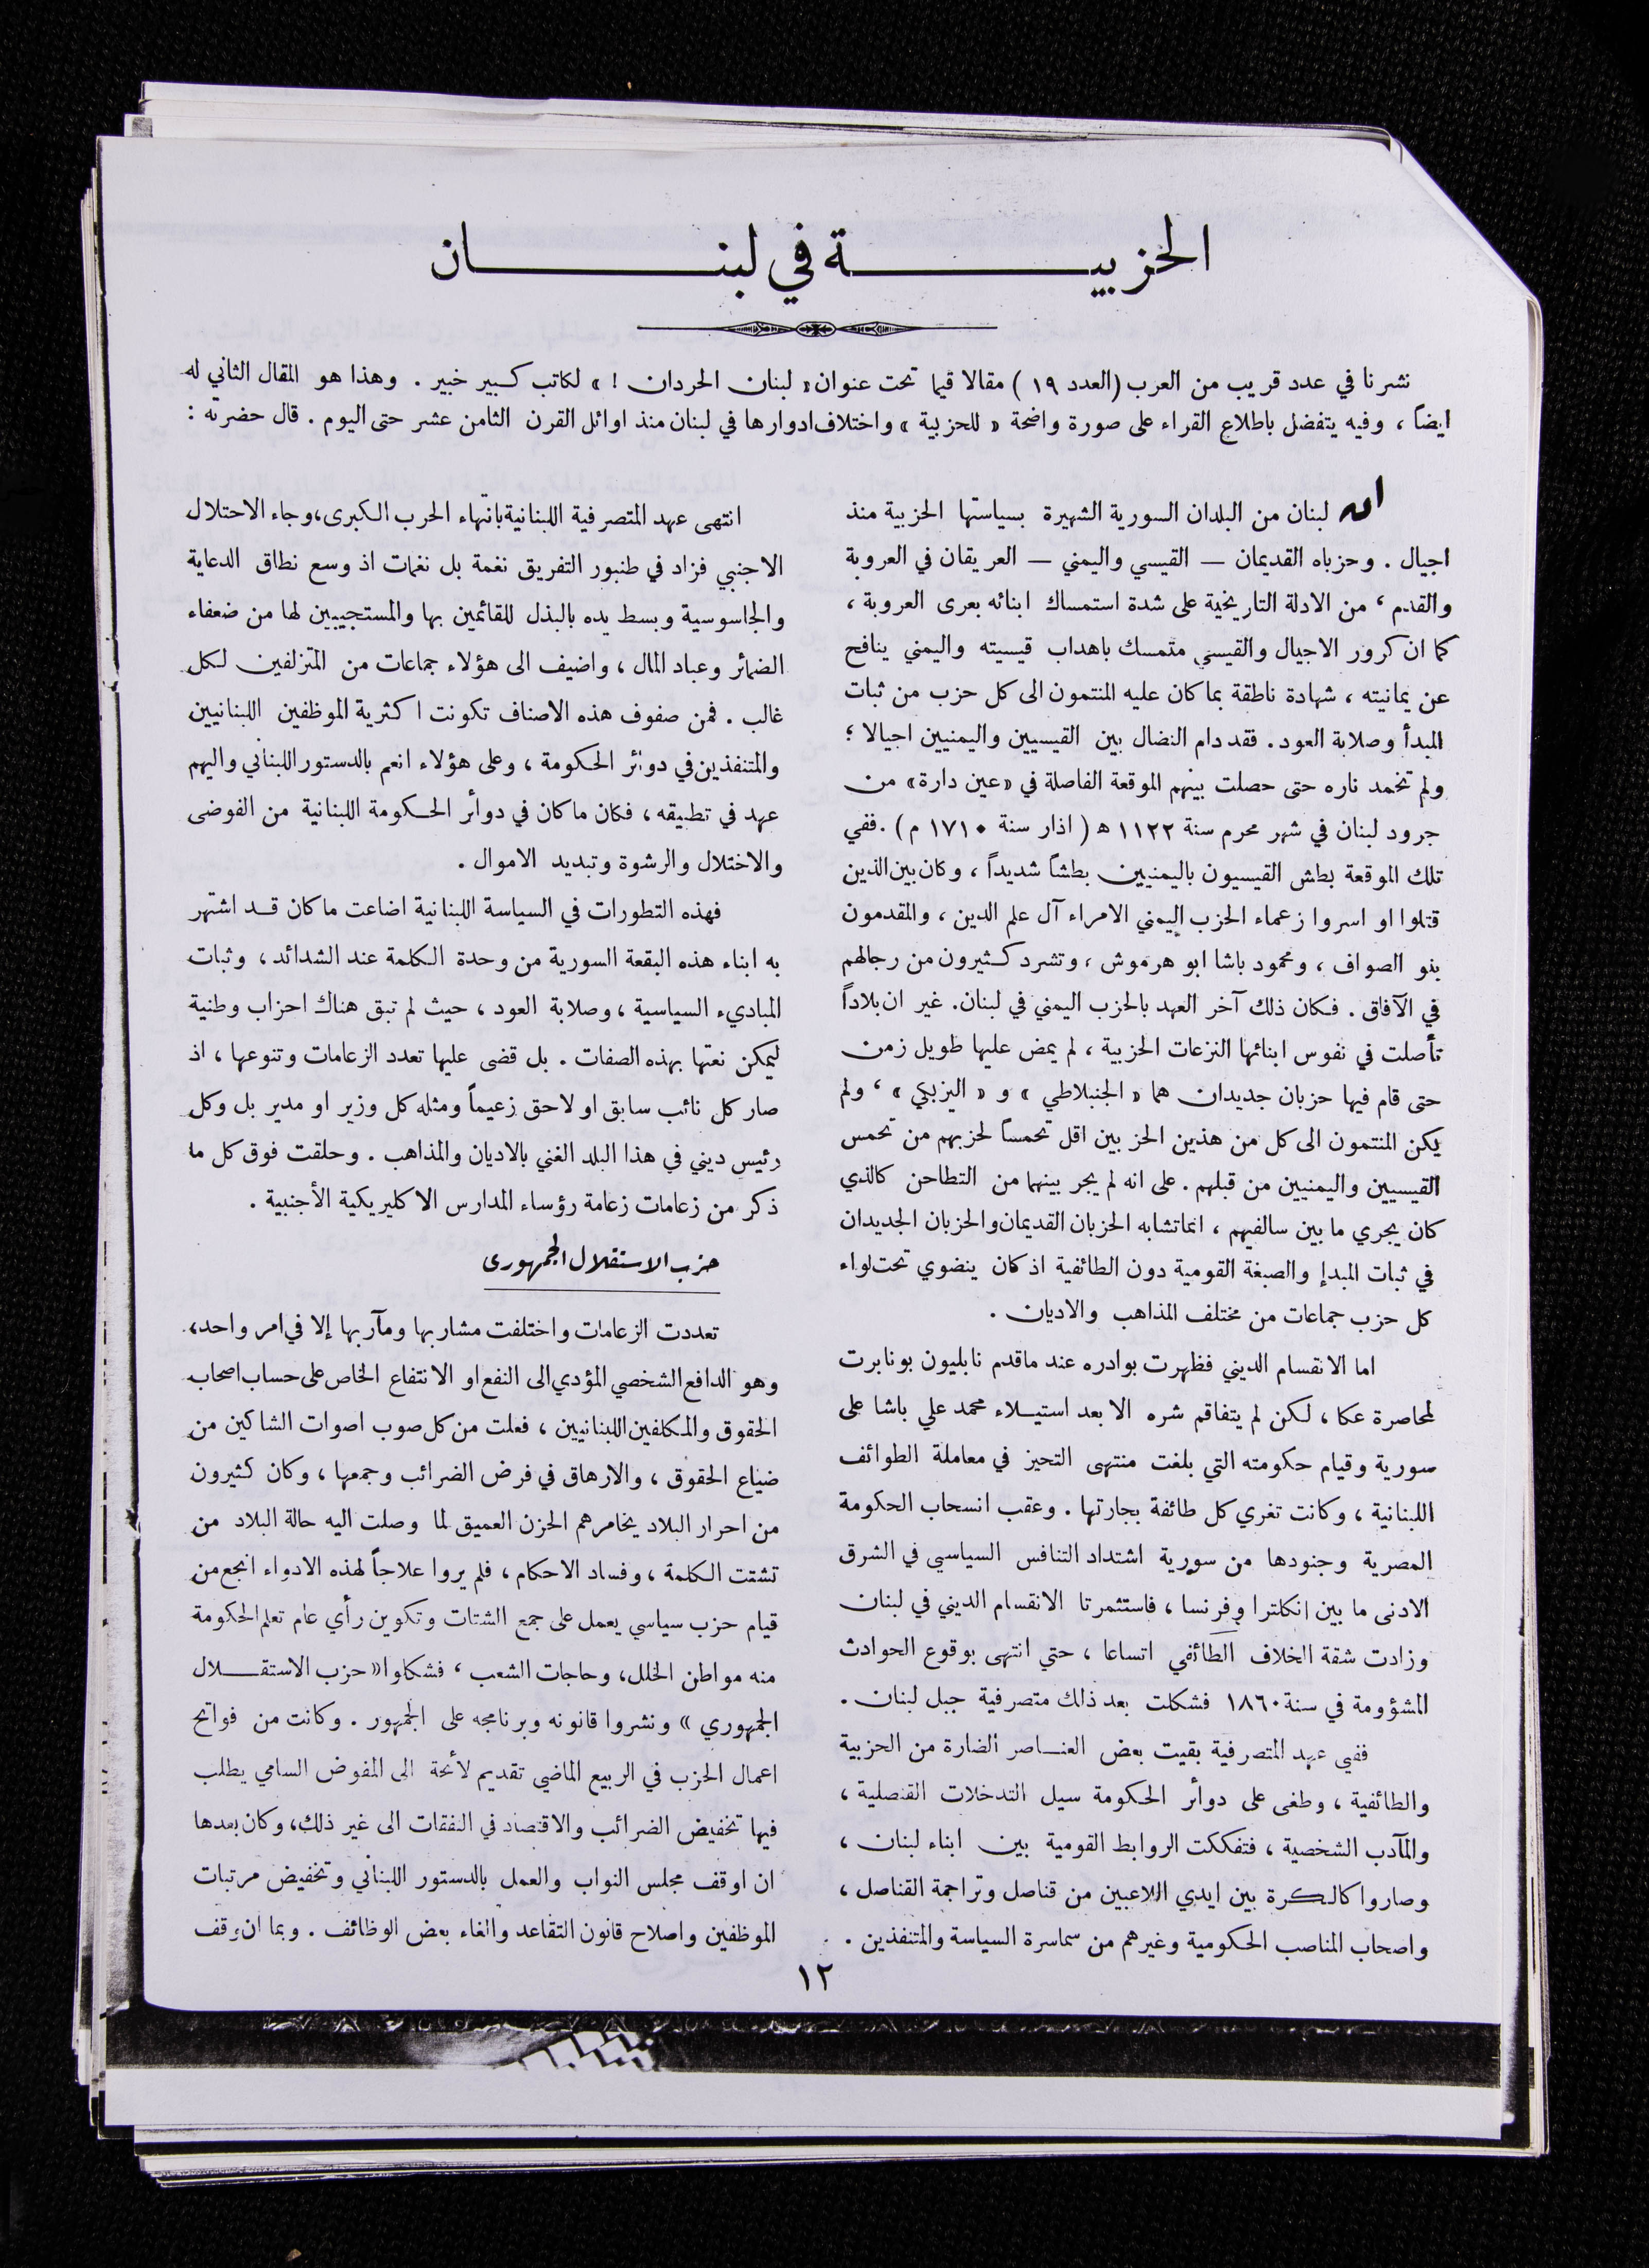 الحزبية في لبنان
نشرنا في عدد قريب من العرب (العدد ١٩) مقالا قيما تحت عنوان « لبنان الحردان ! » لكاتب كبير خبير . وهذا هو المقال الثاني له
ايضاً ، وفيه يتفضل باطلاع القراء على صورة واضحة « للحزبية » واختلاف ادوارها في لبنان منذ اوائل القرن الثامن عشر حتى اليوم . قال حضرته :
ان لبنان من البلدان السورية الشهيرة بسياستها الحزبية منذ
اجيال . وحزباه القديمان — القيسي واليمني — العريقان في العروبة
والقدم ، من الادلة التاريخية على شدة استمساك ابنائه بعرى العروبة ،
كما ان كرور الاجيال والقيسي متمسك باهداب قيسيته واليمني ينافح
عن يمانيته ، شهادة ناطقة بما كان عليه المنتمون الى كل حزب من ثبات
المبدأ وصلابة العود . فقد دام النضال بين القيسيين واليمنيين اجيالا ؛
ولم تخمد ناره حتى حصلت بينهم الموقعة الفاصلة في «عين دارة» من
جرود لبنان في شهر محرم سنة ١١٢٢ ه ( اذار سنة ١٧١٠ م ) . ففي
تلك الموقعة بطش القيسيون باليمنيين بطشاً شديداً ، وكان بين الذين
قتلوا او اسروا زعماء الحزب اليمني الامراء آل علم الدين ، والمقدمون
بنو الصواف ، ومحمود باشا ابو هرموش ، وتشرد كثيرون من رجالهم
في الآفاق . فكان ذلك آخر العهد بالحزب اليمني في لبنان . غير ان بلاداً
تأصلت في نفوس ابنائها النزعات الحزبية ، لم يمض عليها طويل زمن
حتى قام فيها حزبان جديدان هما « الجنبلاطي » و « اليزبكي » ، ولم
يكن المنتمون الى كل من هذين الحزبين اقل تحمساً لحزبهم من تحمس
القيسيين واليمنيين من قبلهم . على انه لم يجر بينهما من التطاحن كالذي
كان يجري ما بين سالفيهم ، انما تشابه الحزبان القديمان والحزبان الجديدان
في ثبات المبدإ والصبغة القومية دون الطائفية اذ كان ينضوي تحت لواء
كل حزب جماعات من مختلف المذاهب والاديان .
اما الانقسام الديني فظهرت بوادره عند ماقدم نابليون بونابرت
لمحاصرة عكا ، لكن لم يتفاقم شره الا بعد استيلاء محمد علي باشا على
سورية وقيام حكومته التي بلغت منتهى التحيز في معاملة الطوائف
اللبنانية ، وكانت تغري كل طائفة بجارتها . وعقب انسحاب الحكومة
المصرية وجنودها من سورية اشتداد التنافس السياسي في الشرق
الادنى ما بين انكلترا وفرنسا ، فاستثمرتا الانقسام الديني في لبنان
وزادت شقة الخلاف الطائفي اتساعا ، حتي انتهى بوقوع الحوادث
المشؤومة في سنة ١٨٦٠ فشكلت بعد ذلك متصرفية جبل لبنان .
ففي عهد المتصرفية بقيت بعض العناصر الضارة من الحزبية
والطائفية ، وطغى على دوائر الحكومة سيل التدخلات القنصلية ،
والمآدب الشخصية ، فتفككت الروابط القومية بين ابناء لبنان ،
وصاروا كالكرة بين ايدي اللاعبين من قناصل وتراجمة القناصل ،
واصحاب المناصب الحكومية وغيرهم من سماسرة السياسة والمتنفذين .
انتهى عهد المتصرفية اللبنانية بانتهاء الحرب الكبرى، وجاء الاحتلال
الاجنبي فزاد في طنبور التفريق نغمة بل نغمات اذ وسع نطاق الدعاية
والجاسوسية وبسط يده بالبذل للقائمين بها والمستجيبين لها من ضعفاء
الضمائر وعباد المال ، واضيف الى هؤلاء جماعات من المتزلفين لكل
غالب . فمن صفوف هذه الاصناف تكونت اكثرية الموظفين اللبنانيين
والمتنفذين في دوائر الحكومة ، وعلى هؤلاء انعم بالدستور اللبناني واليهم
عهد في تطبيقه ، فكان ما كان في دوائر الحكومة اللبنانية من الفوضى
والاختلال والرشوة وتبديد الاموال .
فهذه التطورات في السياسة اللبنانية اضاعت ما كان قد اشتهر
به ابناء هذه البقعة السورية من وحدة الكلمة عند الشدائد ، وثبات
المباديء السياسية ، وصلابة العود ، حيث لم تبق هناك احزاب وطنية
ليمكن نعتها بهذه الصفات . بل قضى عليها تعدد الزعامات وتنوعها ، اذ
صار كل نائب سابق او لاحق زعيماً ومثله كل وزير او مدير بل وكل
رئيس ديني في هذا البلد الغني بالاديان والمذاهب . وحلقت فوق كل ما
ذكر من زعامات زعامة رؤساء المدارس الاكليريكية الأجنبية .
حزب الاستقلال الجمهورى
تعددت الزعامات واختلفت مشاربها ومآربها إلا في امر واحد،
وهو الدافع الشخصي المؤدي الى النفع او الانتفاع الخاص على حساب اصحاب
الحقوق والمكلفين اللبنانيين ، فعلت من كل صوب اصوات الشاكين من
ضياع الحقوق ، والارهاق في فرض الضرائب وجمعها ، وكان كثيرون
من احرار البلاد يخامرهم الحزن العميق لما وصلت اليه حالة البلاد من
تشتت الكلمة ، وفساد الاحكام ، فلم يروا علاجاً لهذه الادواء انجع من
قيام حزب سياسي يعمل على جمع الشتات وتكوين رأي عام تعلم الحكومة
منه مواطن الخلل، وحاجات الشعب ، فشكلوا « حزب الاستقلال
الجمهوري » ونشروا قانونه وبرنامجه على الجمهور . وكانت من فواتح
اعمال الحزب في الربيع الماضي تقديم لائحة الى المفوض السامي يطلب
فيها تخفيض الضرائب والاقتصاد في النفقات الى غير ذلك، وكان بعدها
ان اوقف مجلس النواب والعمل بالدستور اللبناني وتخفيض مرتبات
الموظفين واصلاح قانون التقاعد والغاء بعض الوظائف . وبما ان وقف
١٢